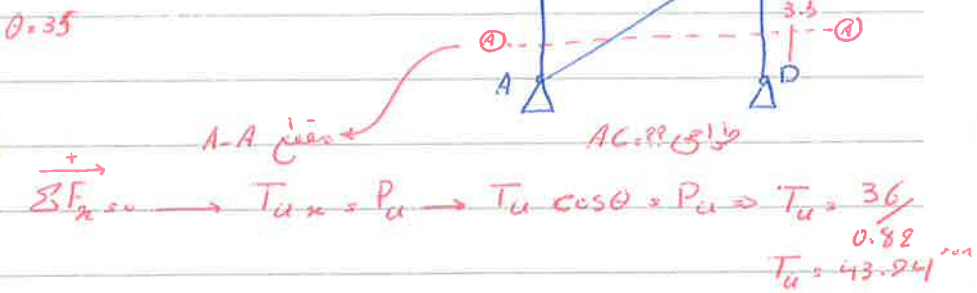 θ=35
3.5
Ⓐ Ⓐ
A D
مقطع A-A طراحی AC=??
+
ΣFx=0 → Tux = Pu → Tu cosθ = Pu ⇒ Tu = 36/0.82
Tu = 43.94 ton